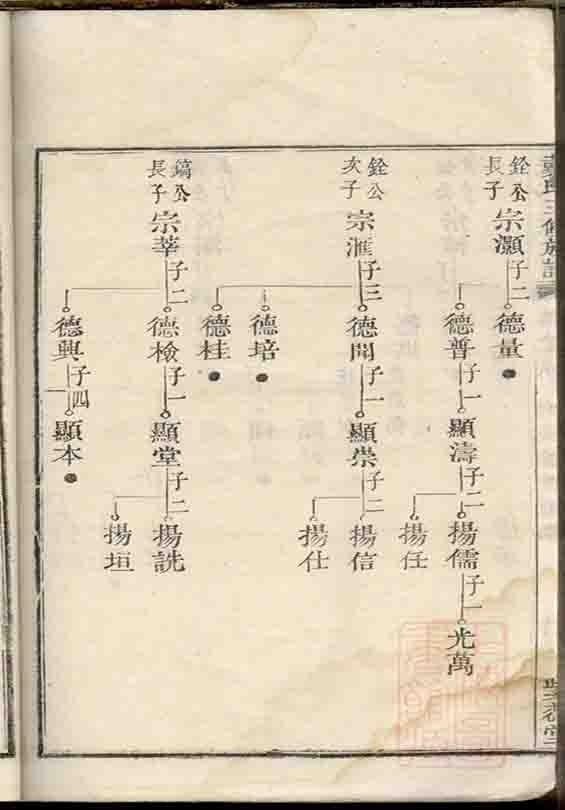 氏三修族譜
銓公
長子
宗灝
子二
德量
德普
子一
顯濤
子二
揚儒
揚任
子一
光萬
銓公
次子
宗滙
子三
德聞
德培
德桂
子一
顯崇
子二
揚信
揚仕
鎬公
長子
宗莘
子二
德檢
德興
子一
顯堂
子二
揚詵
揚垣
子四
顯本